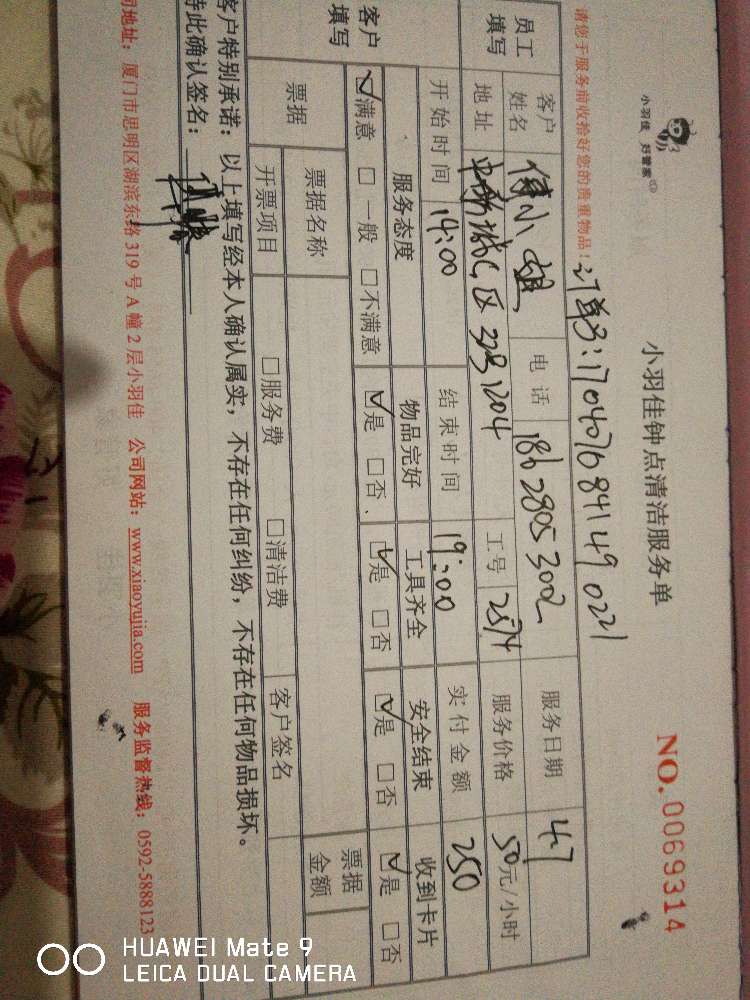 小羽佳 好管家
小羽佳钟点清洁服务单
NO. 0069314
请您于服务前收拾好您的贵重物品!
订单号:170407684149 0221
员工填写
客户姓名 傅小姐 电话 18628053002 服务日期 4.7
地址 C区 1204 工号 2574 服务价格 50元/小时
开始时间 14:00 结束时间 19:00 实付金额 250
客户填写
服务态度 物品完好 工具齐全 安全结束 收到卡片
☑满意 □一般 □不满意 ☑是 □否、 ☑是 □否 ☑是 □否 ☑是 □否
票据 票据名称 票据金额
开票项目 □服务费 □清洁费 客户签名
客户特别承诺:以上填写经本人确认属实,不存在任何纠纷,不存在任何物品损坏。
特此确认签名:
司地址:厦门市思明区湖滨东路 319 号 A 幢 2 层小羽佳 公司网站:www.xiaoyujia.com 服务监督热线:0592-5888123
HUAWEI Mate 9
LEICA DUAL CAMERA